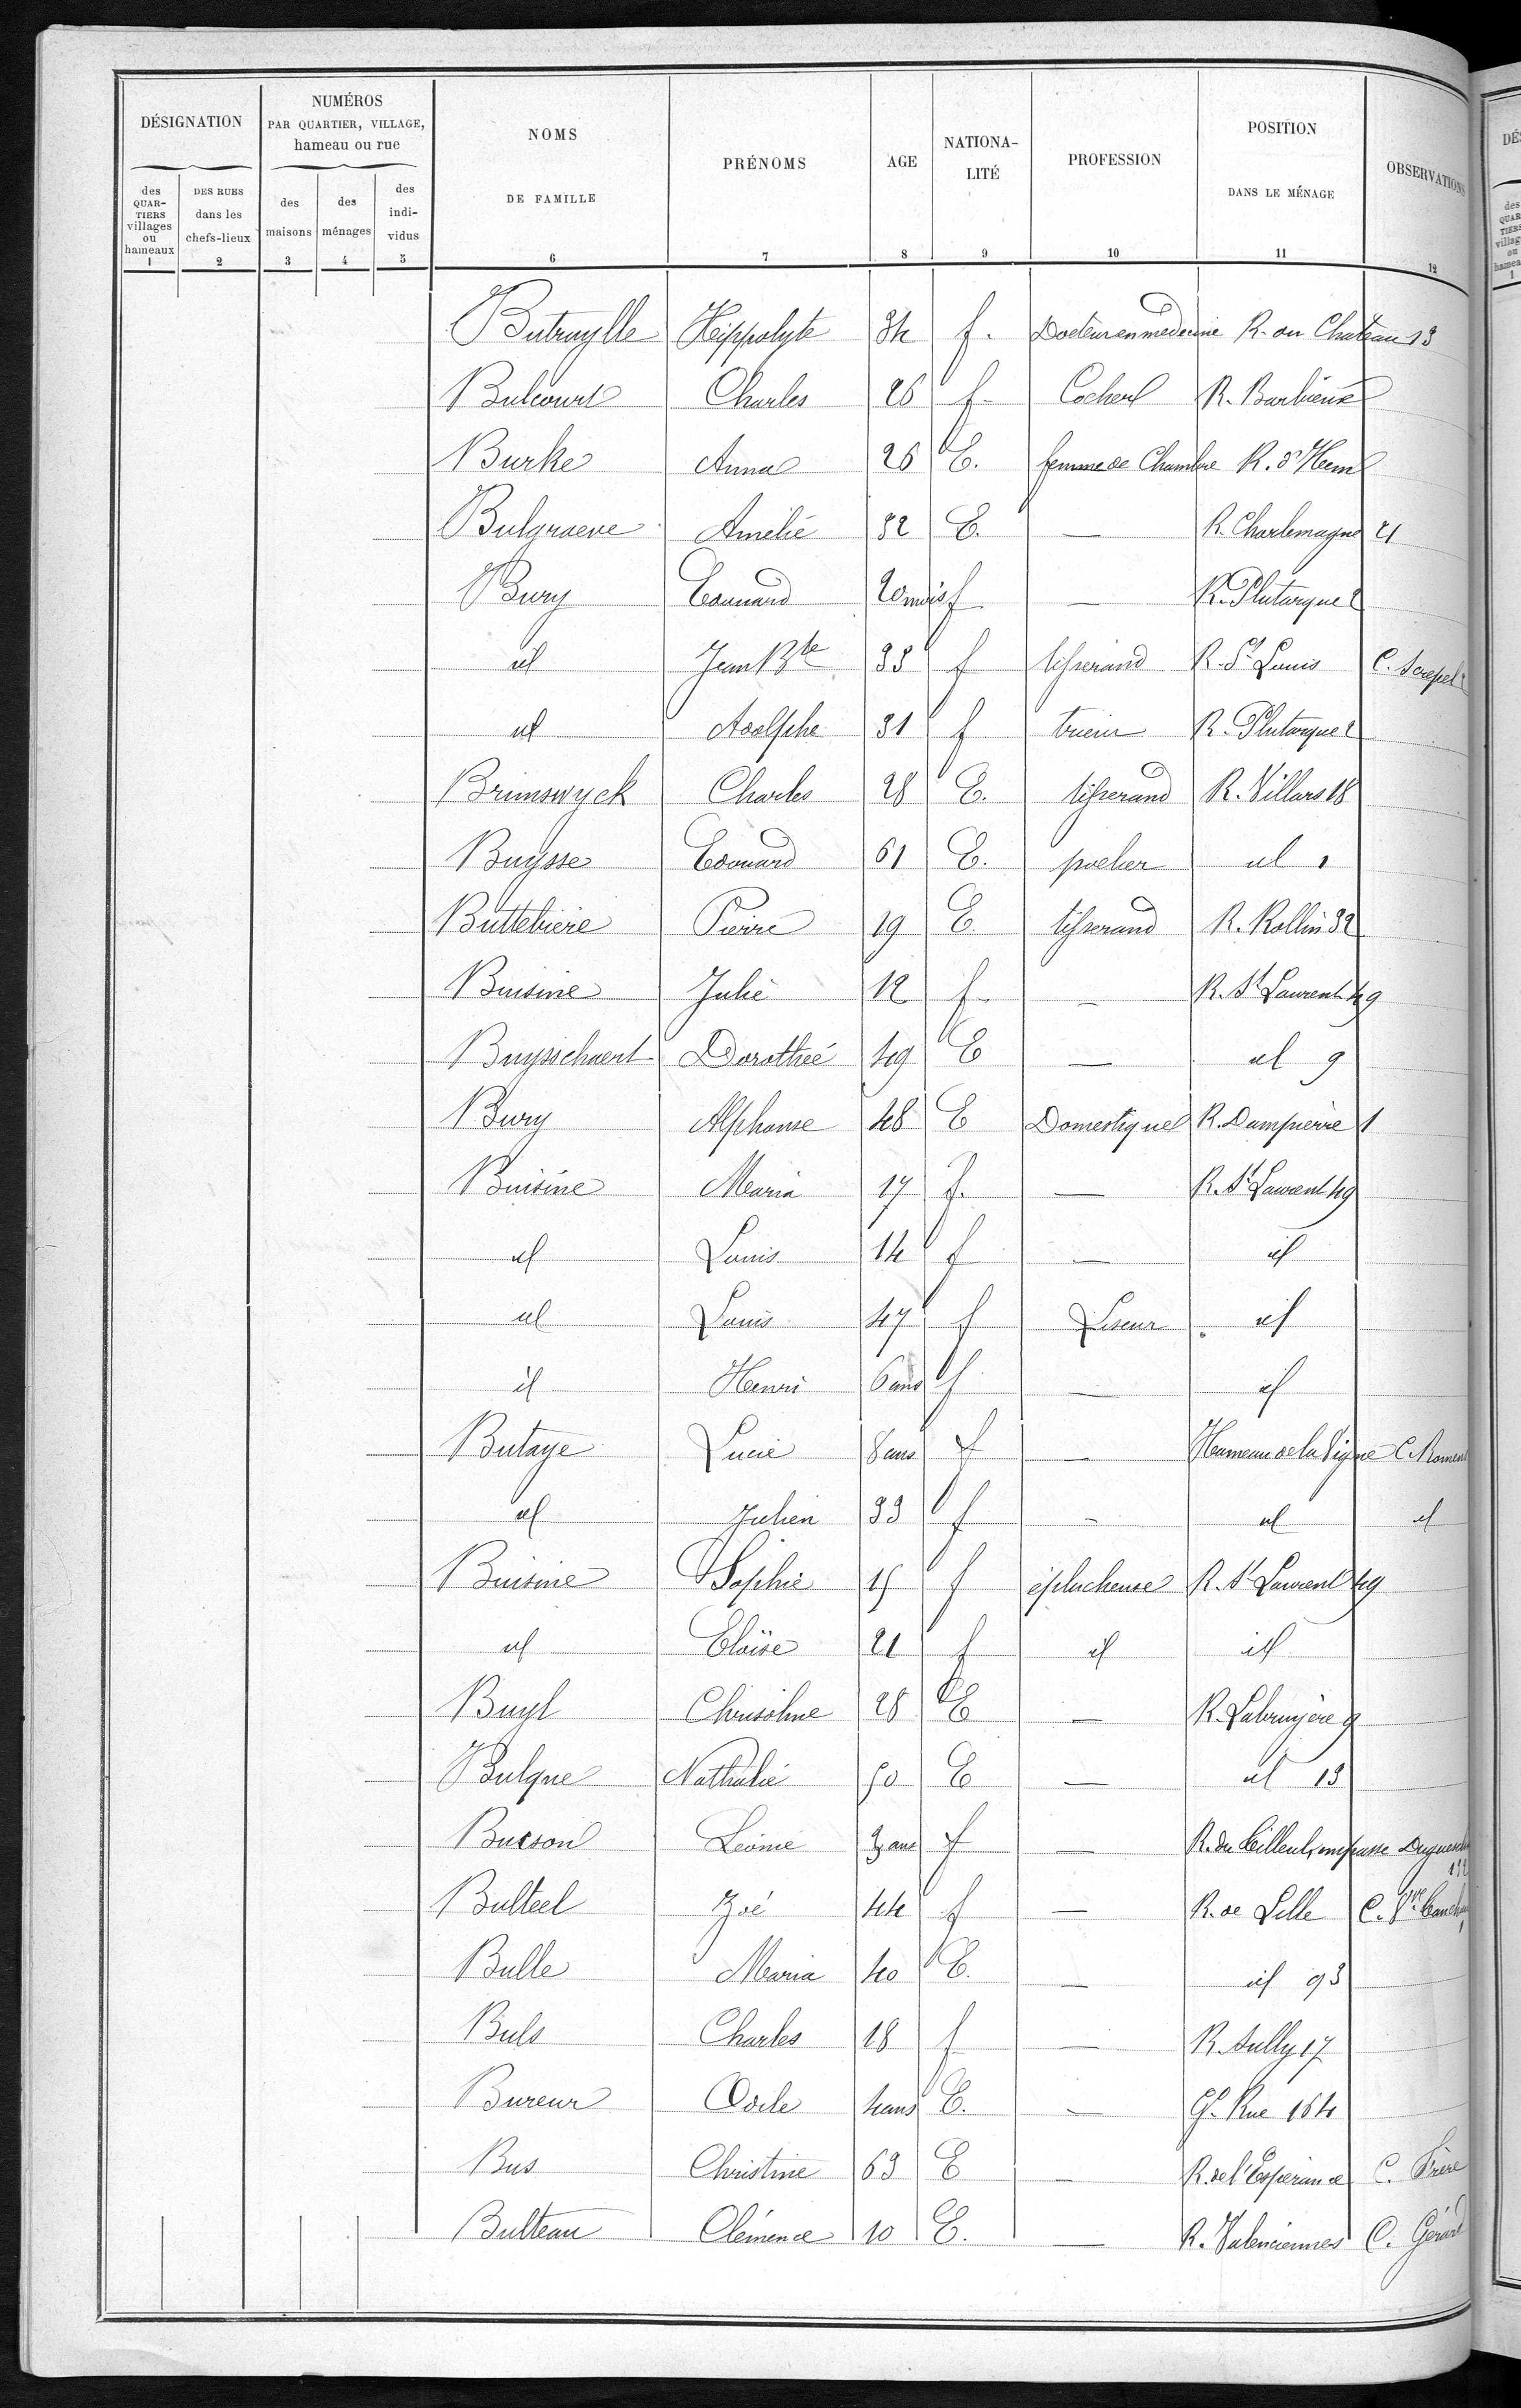 DÉSIGNATION NUMÉROS PAR QUARTIER, VILLAGE, hameau ou rue NOMS DE FAMILLE PRÉNOMS AGE NATIONA-LITÉ PROFESSION POSITION DANS LE MÉNAGE OBSERVATIONS
des QUAR-TIERS villages ou hameaux DES RUES dans les chefs-lieux des maisons des ménages des indi-vidus
1 2 3 4 5 6 7 8 9 10 11 12
Butruylle Hippolyte 34 f. Docteur en medecine R. du Chateau 13
Bulcourt Charles 26 f. Cocher R. Barbieux
Burke Anna 26 E. femme de Chambre R. d'Hem
Bulgraeve Amélie 32 E. — R. Charlemagne 21
Bury Edouard 20 mois f — R. Plutarque 2
id Jean Bte 35 f tisserand R. St Louis C. Screpel
id Adolphe 31 f trieur R. Plutarque 2
Brunswyck Charles 28 E. tisserand R. Villars 18
Buysse Edouard 61 E. id 1
Buttebiere Pierre 19 E. tisserand R. Rollin 32
Buisine Julie 12 f — R. St Laurent 49
Buysschaert Dorothée 49 E — id 9
Bury Alphonse 48 E Domestique R. Dampierre 1
Buisine Maria 17 f. — R. St Laurent 49
id Louis 14 f — id
id Louis 47 f Liseur id
id Henri 6 ans f — id
Butaye Lucie 8 ans f — Hameau de la Vigne C. Roment
id Julien 33 f - id id
Buisine Sophie 15 f éplucheuse R. St Laurent 49
id Eloïse 21 f id id
Buyl Christine 28 E — R. Labruyère 9
Bulque Nathalie 50 E — id 13
Buisson Léonie 3 ans f — R. du Tilleul, impasse Duguesclin 132
Bulteel Zoé 44 f — R. de Lille C. Vve
Bulle Maria 40 E. — id 93
Buls Charles 18 f — R. Sully 17
Bureur Odile 4 ans E. — Gde Rue 164
Bus Christine 63 E — R. de l'Espérance C. Frère
Bulteau Clémence 10 E. — R. Valenciennes C. Gérard